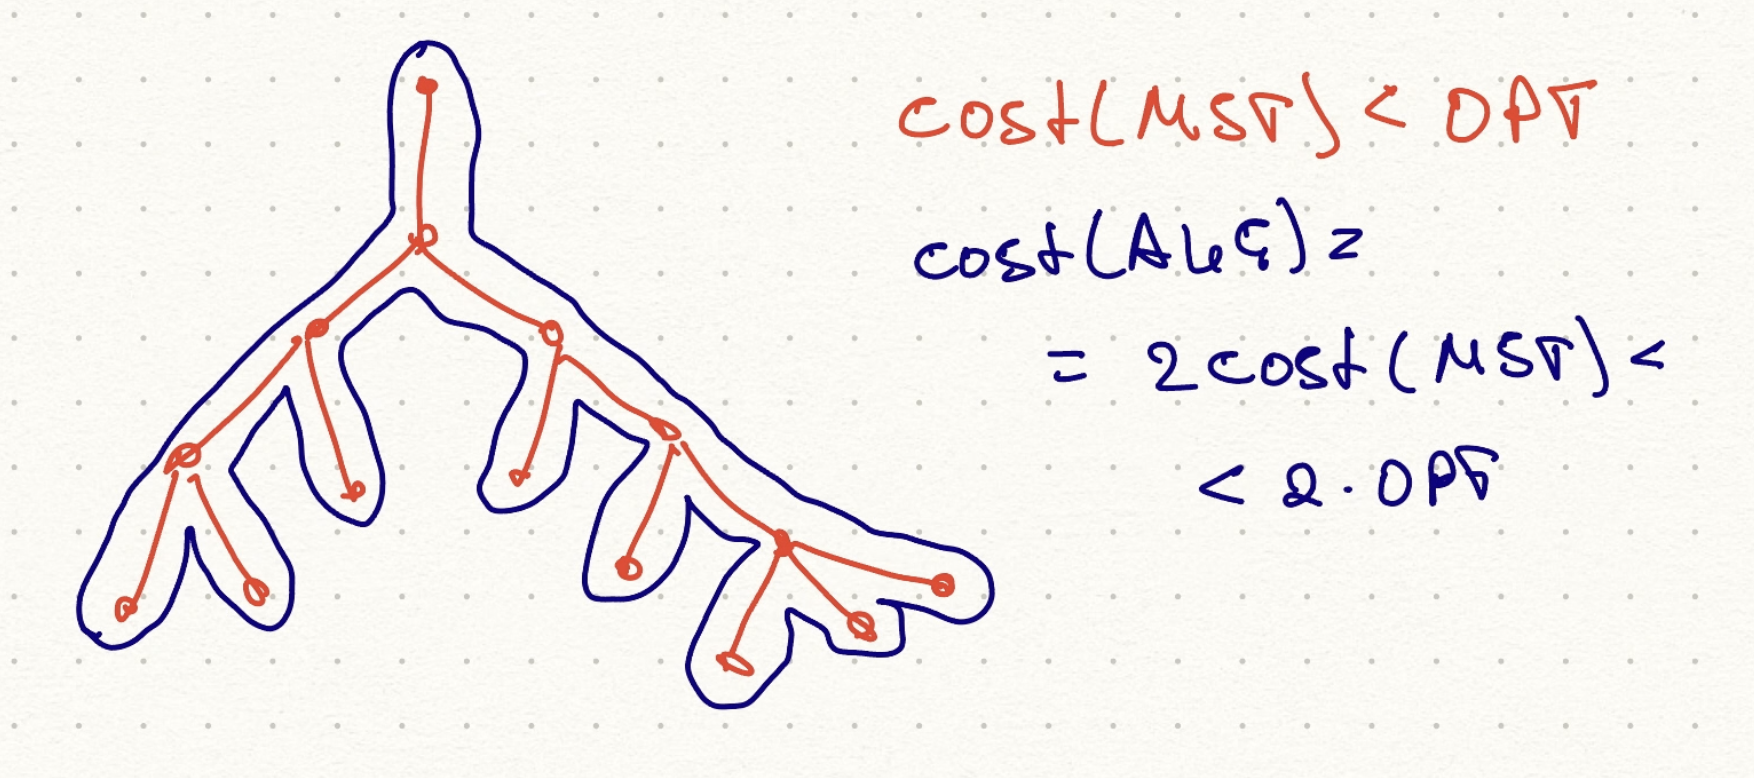 cost(MST) < OPT
cost(ALG) =
= 2 cost(MST) <
< 2 · OPT